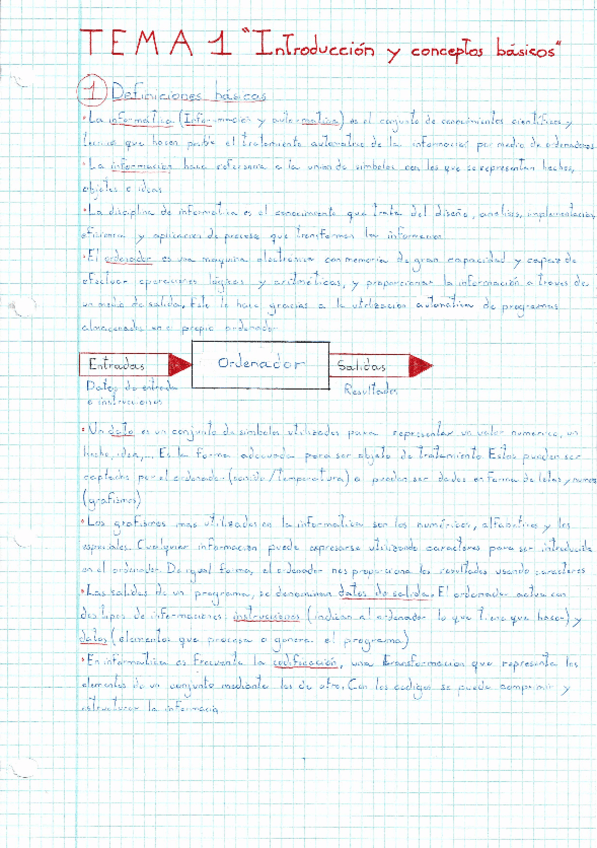 TEMA 1 "Introducción y conceptos básicos"
1 Definiciones básicas
· La informática (Información y auto-mática) es el conjunto de conocimientos científicos y
técnicos que hacen posible el tratamiento automático de la información por medio de ordenadores
· La información hace referencia a la unión de símbolos con los que se representan hechos,
objetos e ideas
· La disciplina de informática es el conocimiento que trata del diseño, análisis, implementación,
eficiencia y aplicación de procesos que transforman la información
· El ordenador es una máquina electrónica con memoria de gran capacidad y capaz de
efectuar operaciones lógicas y aritméticas, y proporcionar la información a través de
un medio de salida. Esto lo hace gracias a la utilización automática de programas
almacenados en el propio ordenador
Entradas Ordenador Salidas
Datos de entrada Resultados
e instrucciones
· Un dato es un conjunto de símbolos utilizados para representar un valor numérico, un
hecho, idea,... Es la forma adecuada para ser objeto de tratamiento. Estos pueden ser
captados por el ordenador (sonido/temperatura) o pueden ser dados en forma de letras y números
(grafismos)
· Los grafismos más utilizados en la informática son los numéricos, alfabético y los
especiales. Cualquier información puede expresarse utilizando caracteres para ser introducida
en el ordenador. De igual forma, el ordenador nos proporciona los resultados usando caracteres
· Las salidas de un programa, se denominan datos de salida. El ordenador actúa con
dos tipos de informaciones instrucciones (indican al ordenador lo que tiene que hacer) y
datos (elementos que procesa o genera el programa)
· En informática es frecuente la codificación, una transformación que representa los
elementos de un conjunto mediante los de otro. Con los códigos se puede comprimir y
estructurar la información